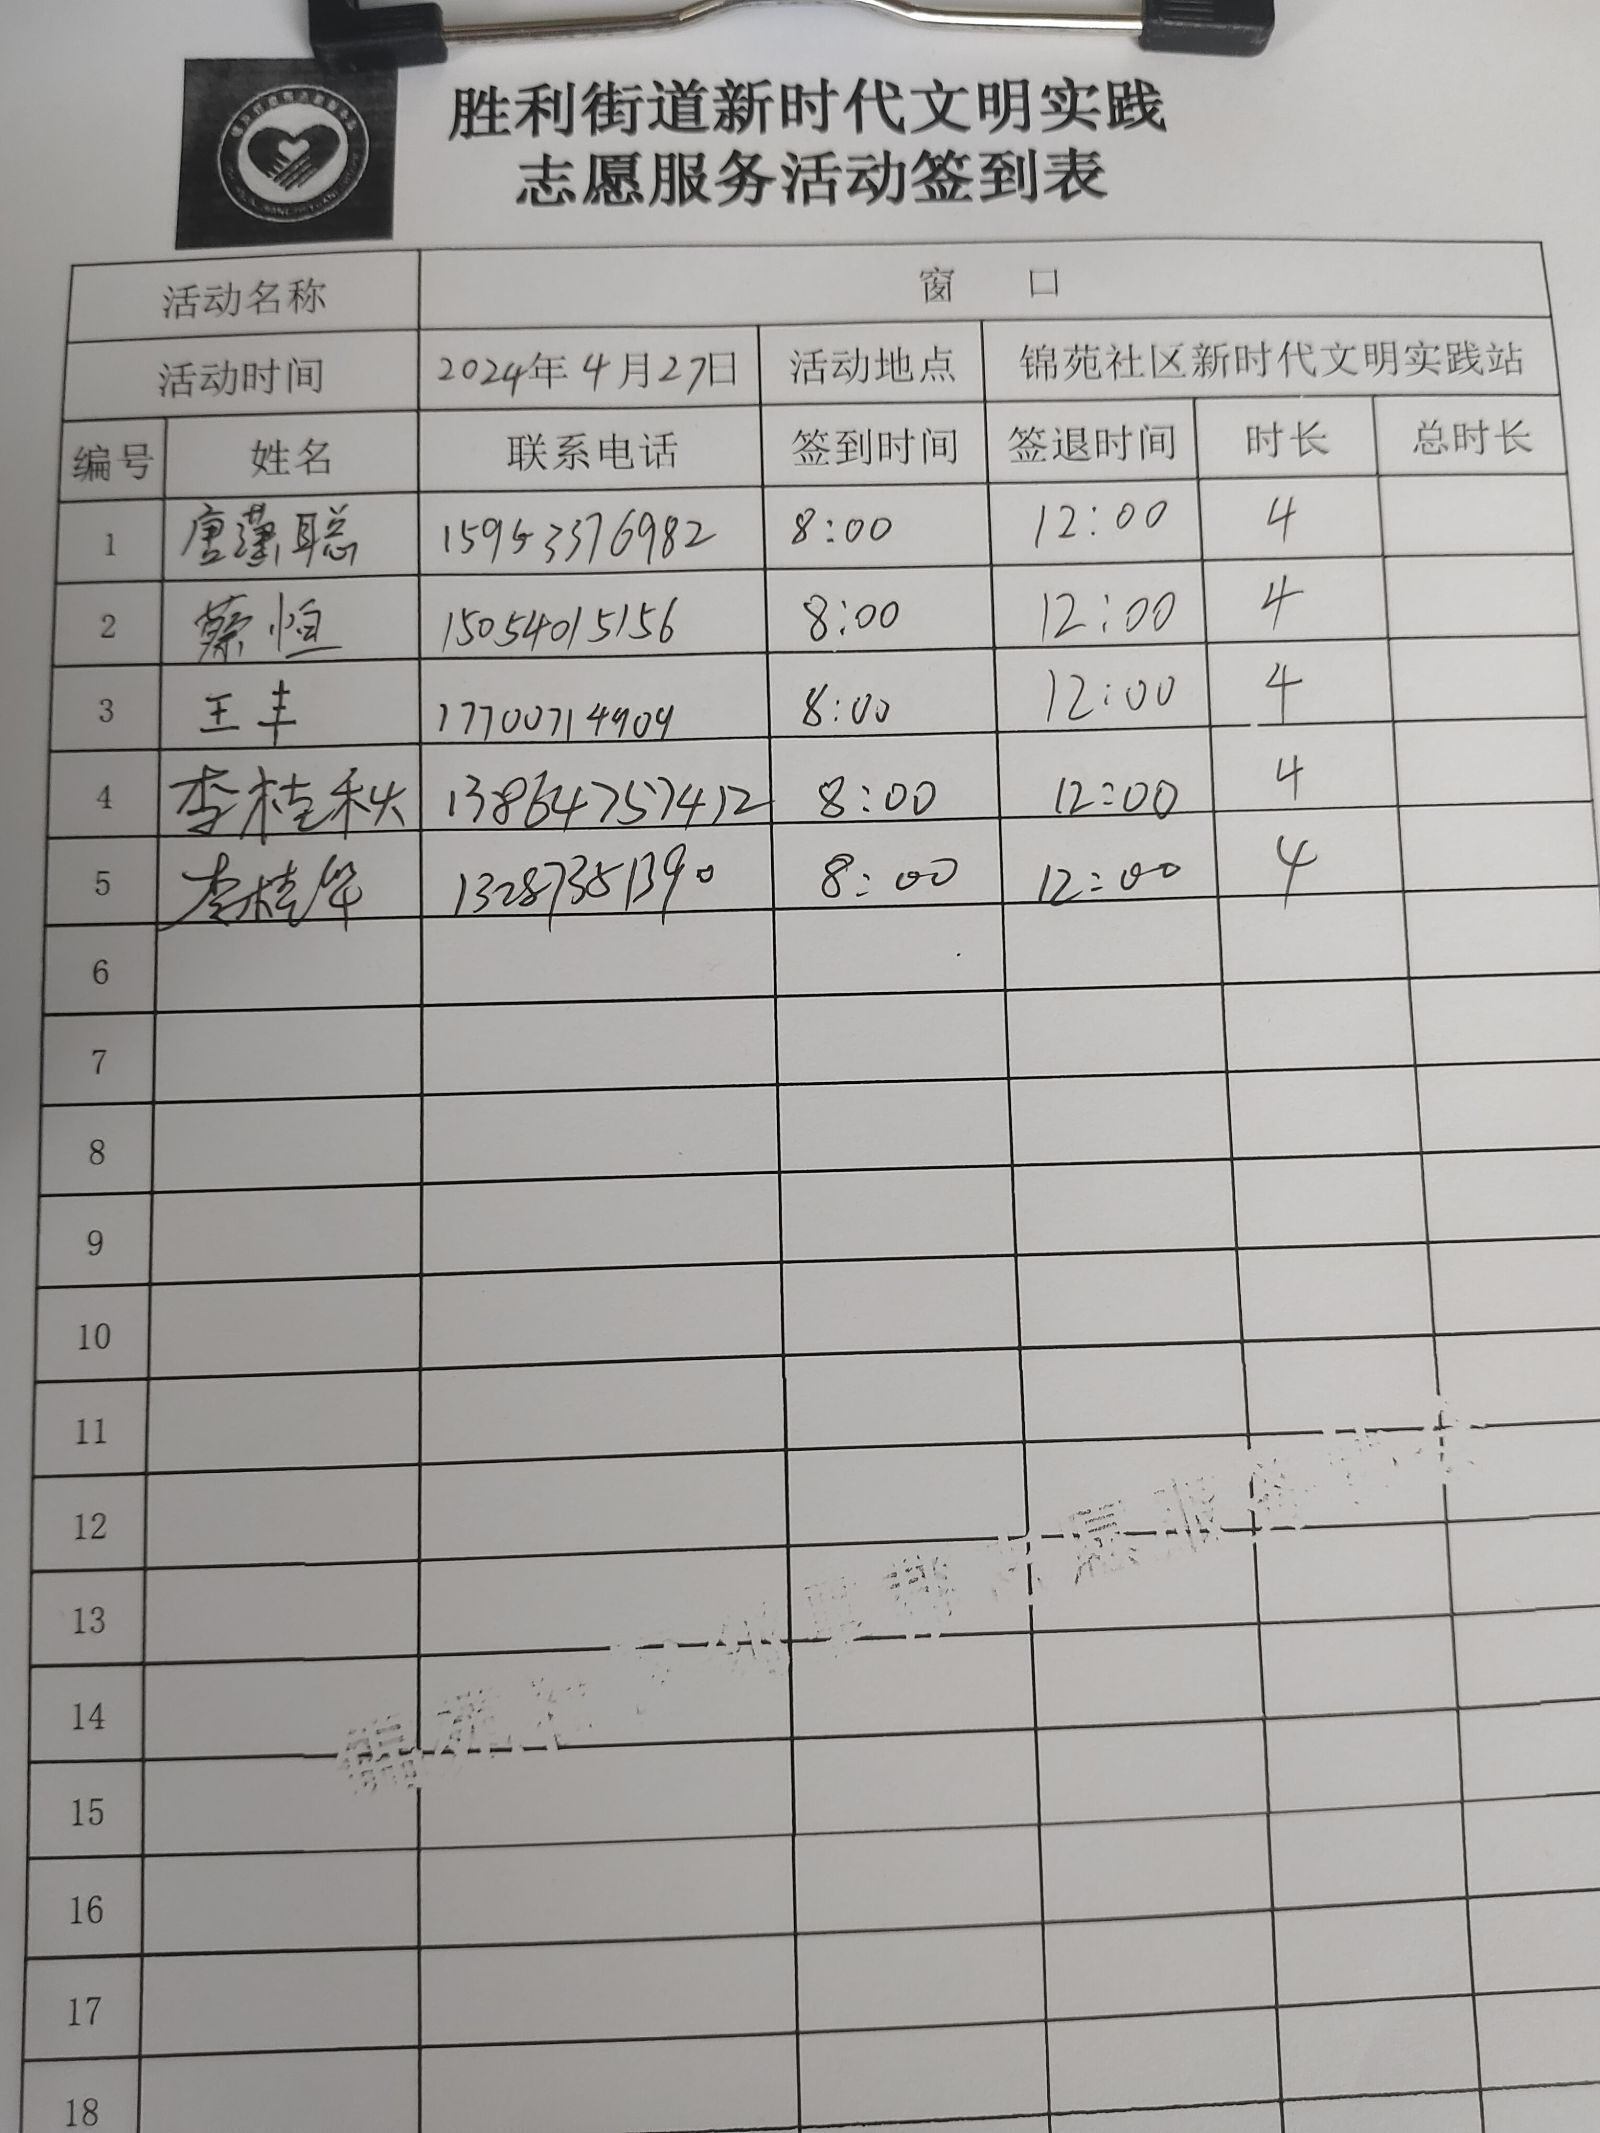 胜利街道新时代文明实践
志愿服务活动签到表
活动名称 窗 口
活动时间 2024年4月27日 活动地点 锦苑社区新时代文明实践站
编号 姓名 联系电话 签到时间 签退时间 时长 总时长
1 唐潇聪 15953376982 8:00 12:00 4
2 蔡恒 15054015156 8:00 12:00 4
3 王丰 17700714909 8:00 12:00 4
4 李桂秋 13864757412 8:00 12:00 4
5 李桂华 13287351390 8:00 12:00 4
6
7
8
9
10
11
12
13
14
15
16
17
18